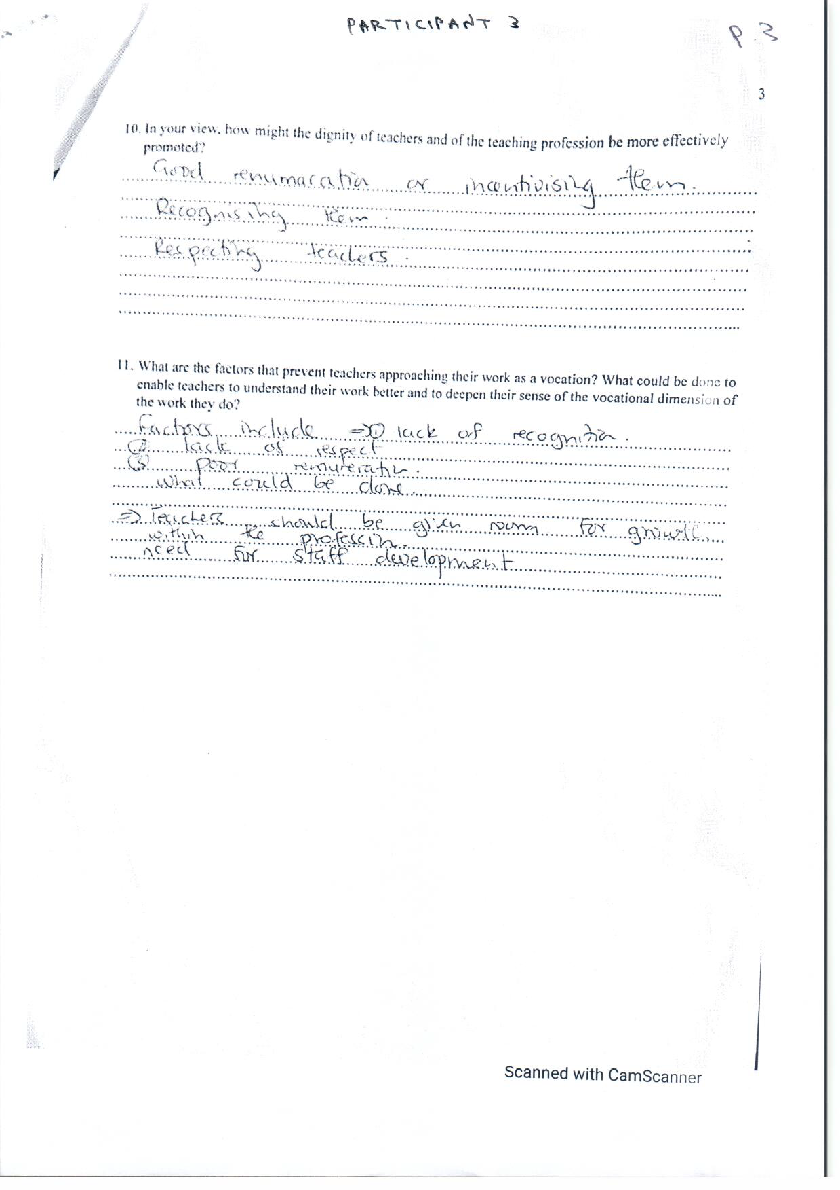 PARTICIPANT 3
P.3
3
10. In your view, how might the dignity of teachers and of the teaching profession be more effectively
promoted?
Good renumaration or incentivising them.
Recognising them.
Respecting teachers.
11. What are the factors that prevent teachers approaching their work as a vocation? What could be done to
enable teachers to understand their work better and to deepen their sense of the vocational dimension of
the work they do?
Factors include ⇒① lack of recognition.
② lack of respect
③ poor remuneration.
What could be done
⇒ Teachers should be given room for growth
within the profession.
need for staff development
Scanned with CamScanner